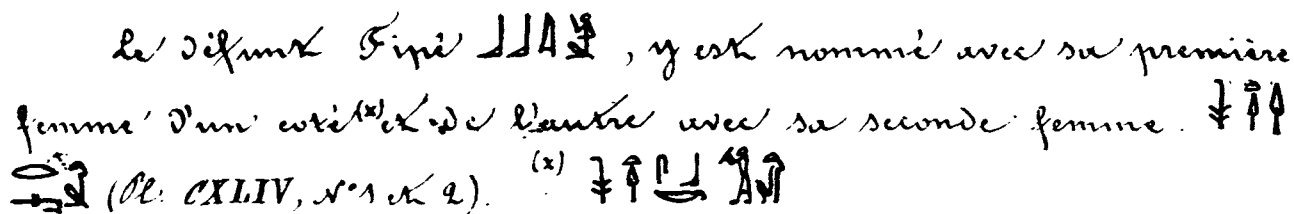 Le défunt Fipé, y est nommé avec sa première
femme d'un coté (x) et de l'autre avec sa seconde femme.
(Pl. CXLIV, N° 1 et 2). (x)